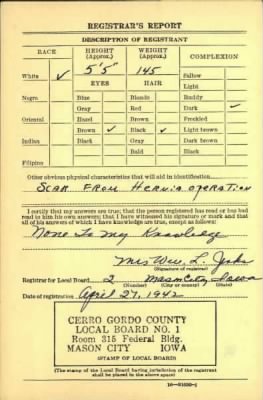 REGISTRAR'S REPORT
DESCRIPTION OF REGISTRANT
RACE HEIGHT (Approx.) WEIGHT (Approx.) COMPLEXION
White ✓ 5' 5" 145 Sallow
EYES HAIR Light
Negro Blue Blonde Ruddy
Gray Red Dark ✓
Oriental Hazel Brown Freckled
Brown ✓ Black ✓ Light brown
Indian Black Gray Dark brown
Bald Black
Filipino
Other obvious physical characteristics that will aid in identification
Scar From Hernia operation
I certify that my answers are true; that the person registered has read or has had
read to him his own answers; that I have witnessed his signature or mark and that
all of his answers of which I have knowledge are true, except as follows:
None to my Knowledge
Mrs Wm. L.
(Signature of registrar)
Registrar for Local Board 2 Mason City Iowa
(Number) (City or county) (State)
Date of registration April 27, 1942
CERRO GORDO COUNTY
LOCAL BOARD NO. 1
Room 315 Federal Bldg.
MASON CITY IOWA
(STAMP OF LOCAL BOARD)
(The stamp of the Local Board having jurisdiction of the registrant
shall be placed in the above space)